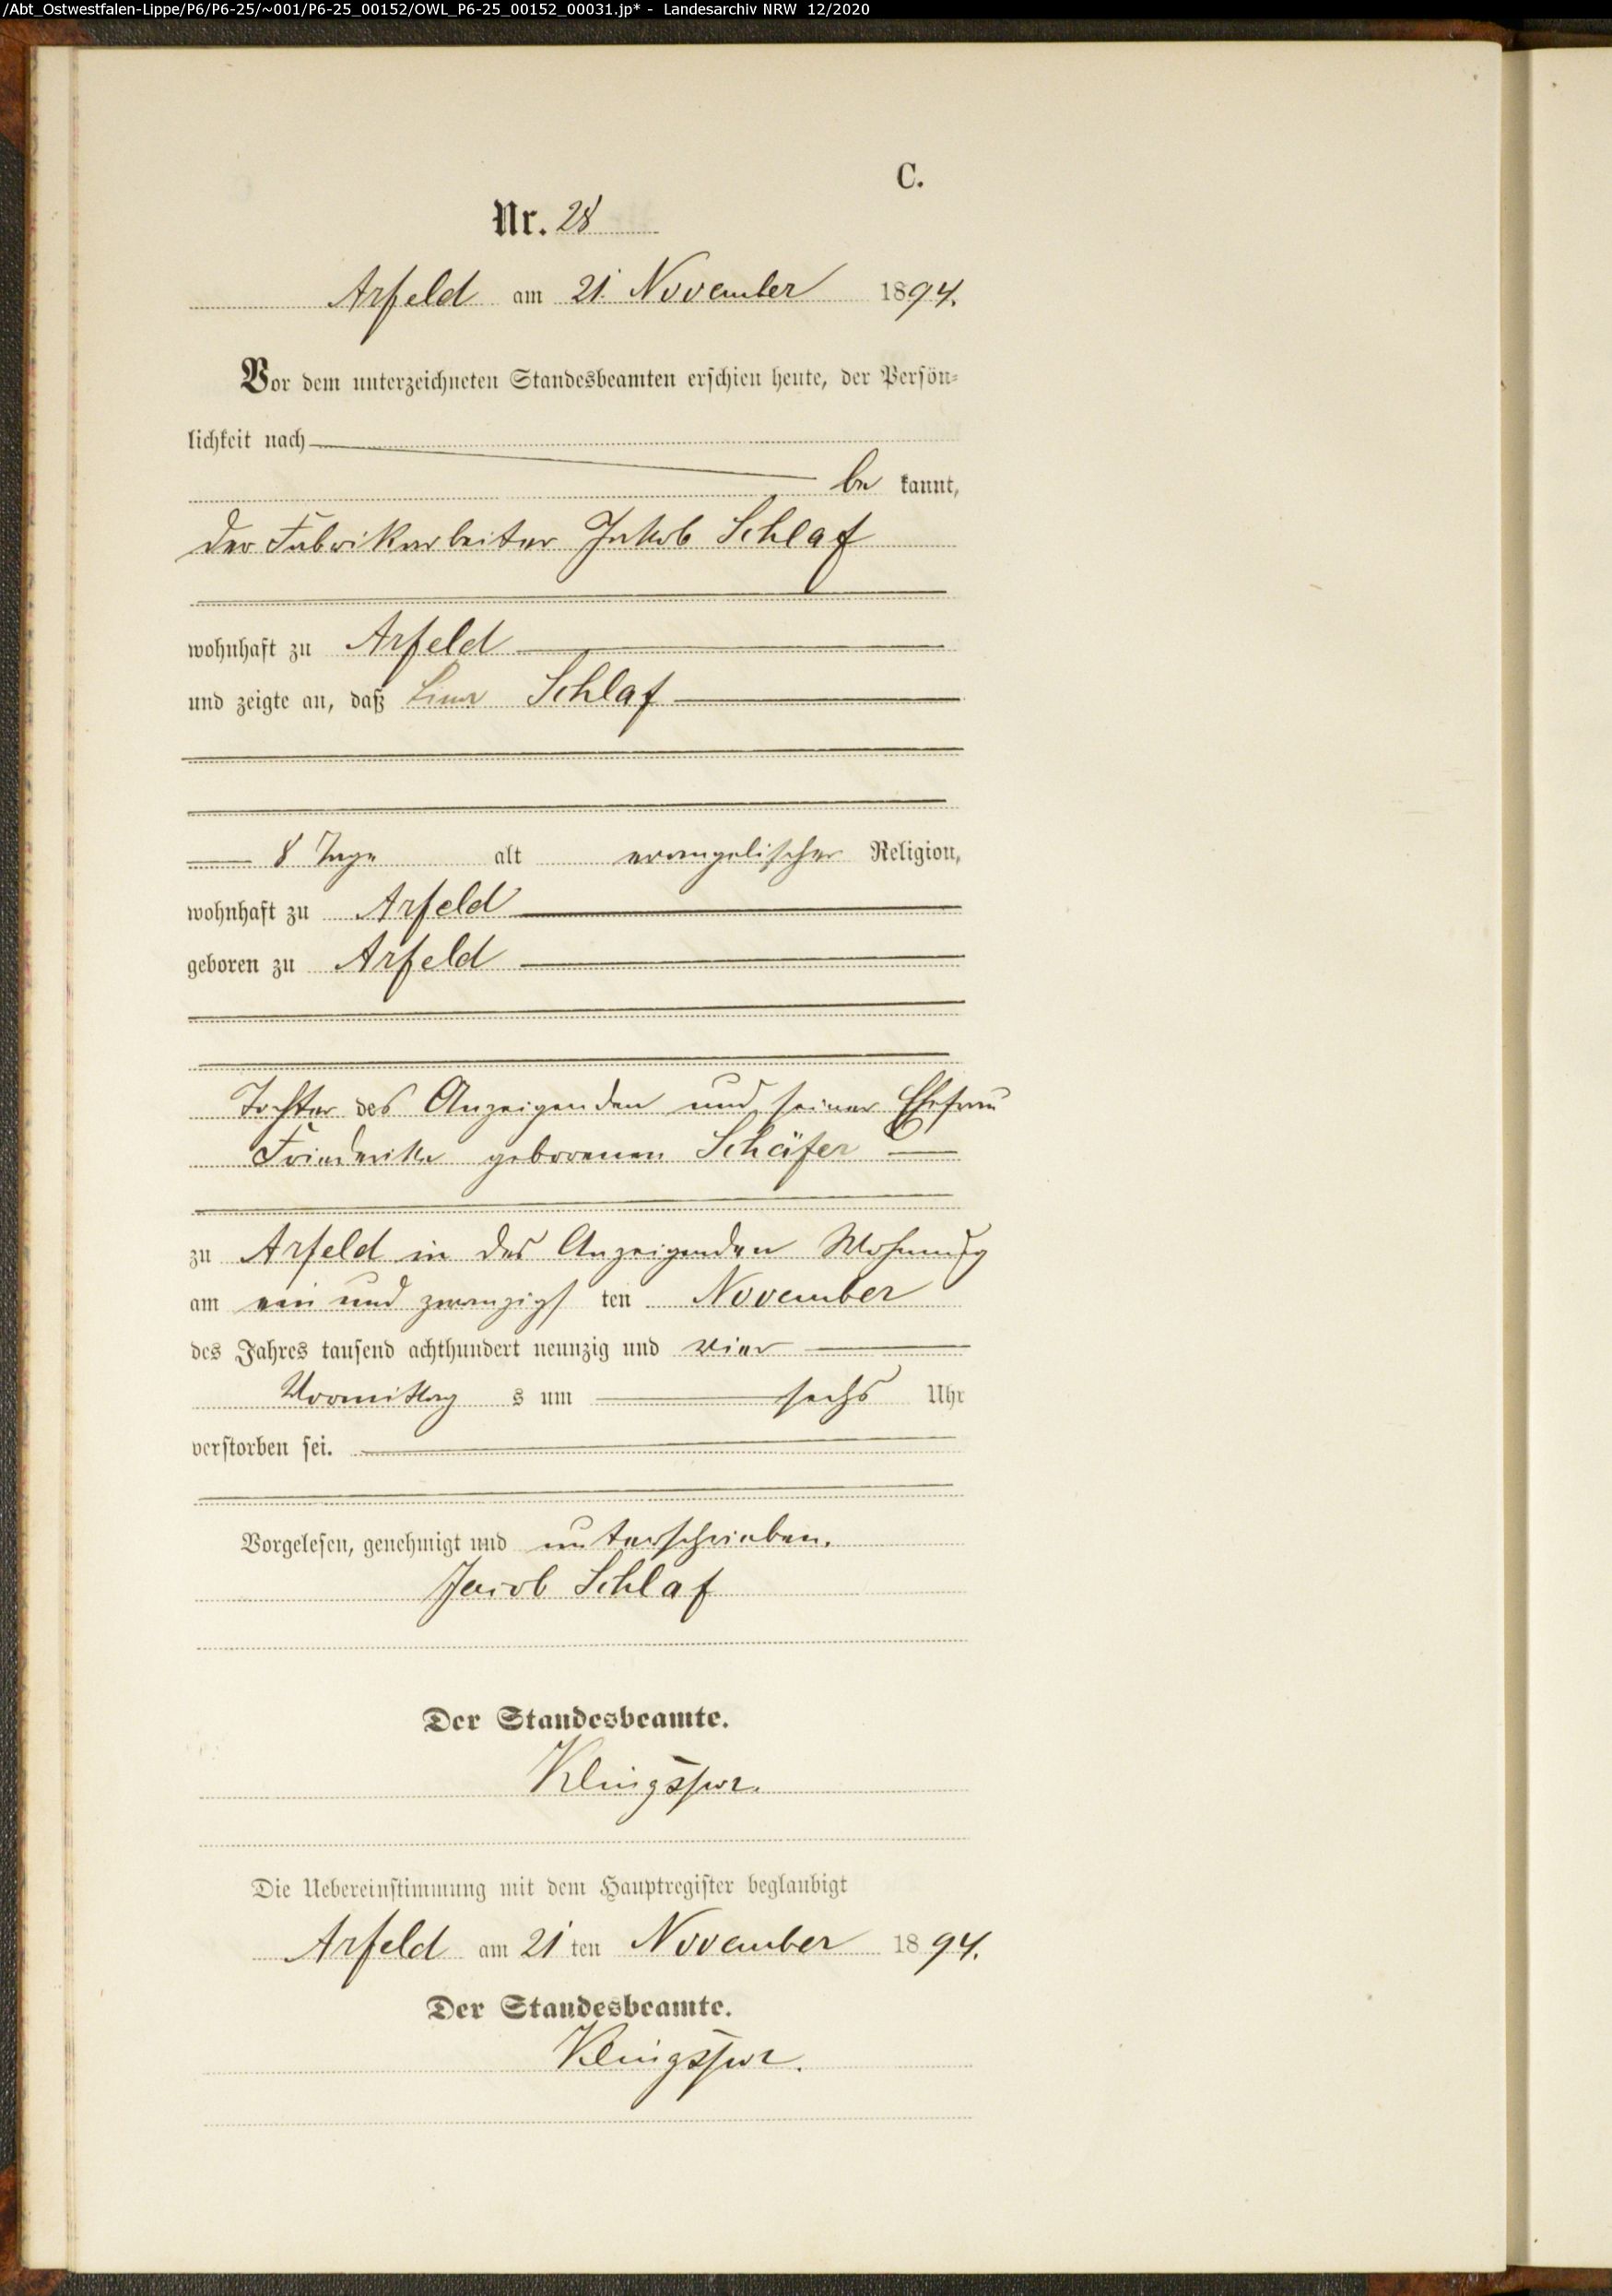 /Abt_Ostwestfalen-Lippe/P6/P6-25/~001/P6-25_00152/OWL_P6-25_00152_00031.jp* - Landesarchiv NRW 12/2020
C.
Nr. 28
Arfeld am 21. November 1894.
Vor dem unterzeichneten Standesbeamten erschien heute, der Persön-
lichkeit nach
be kannt,
der Fabrikarbeiter Jakob Schlaf
wohnhaft zu Arfeld
und zeigte an, daß Lina Schlaf
8 Tage alt evangelischer Religion,
wohnhaft zu Arfeld
geboren zu Arfeld
Tochter des Anzeigenden und seiner Ehefrau
Friederike geborenen Schäfer
zu Arfeld in des Anzeigenden Wohnung
am ein und zwanzigs ten November
des Jahres tausend achthundert neunzig und vier
Vormittag s um sechs Uhr
verstorben sei.
Vorgelesen, genehmigt und unterschrieben.
Jacob Schlaf
Der Standesbeamte.
Klingspor.
Die Uebereinstimmung mit dem Hauptregister beglaubigt
Arfeld am 21 ten November 1894.
Der Standesbeamte.
Klingspor.